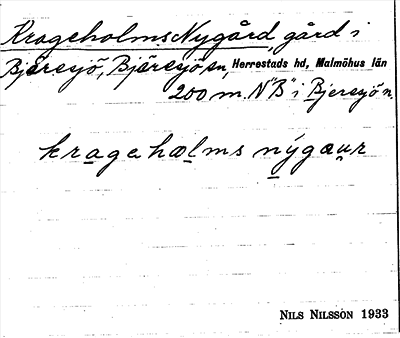 Krageholms Nygård, gård i
Bjäresjö, Bjäresjö sn, Herrestads hd, Malmöhus län
200 m. N "B" i Bjersjö n.
kragehælms nýgæur
NILS NILSSON 1933